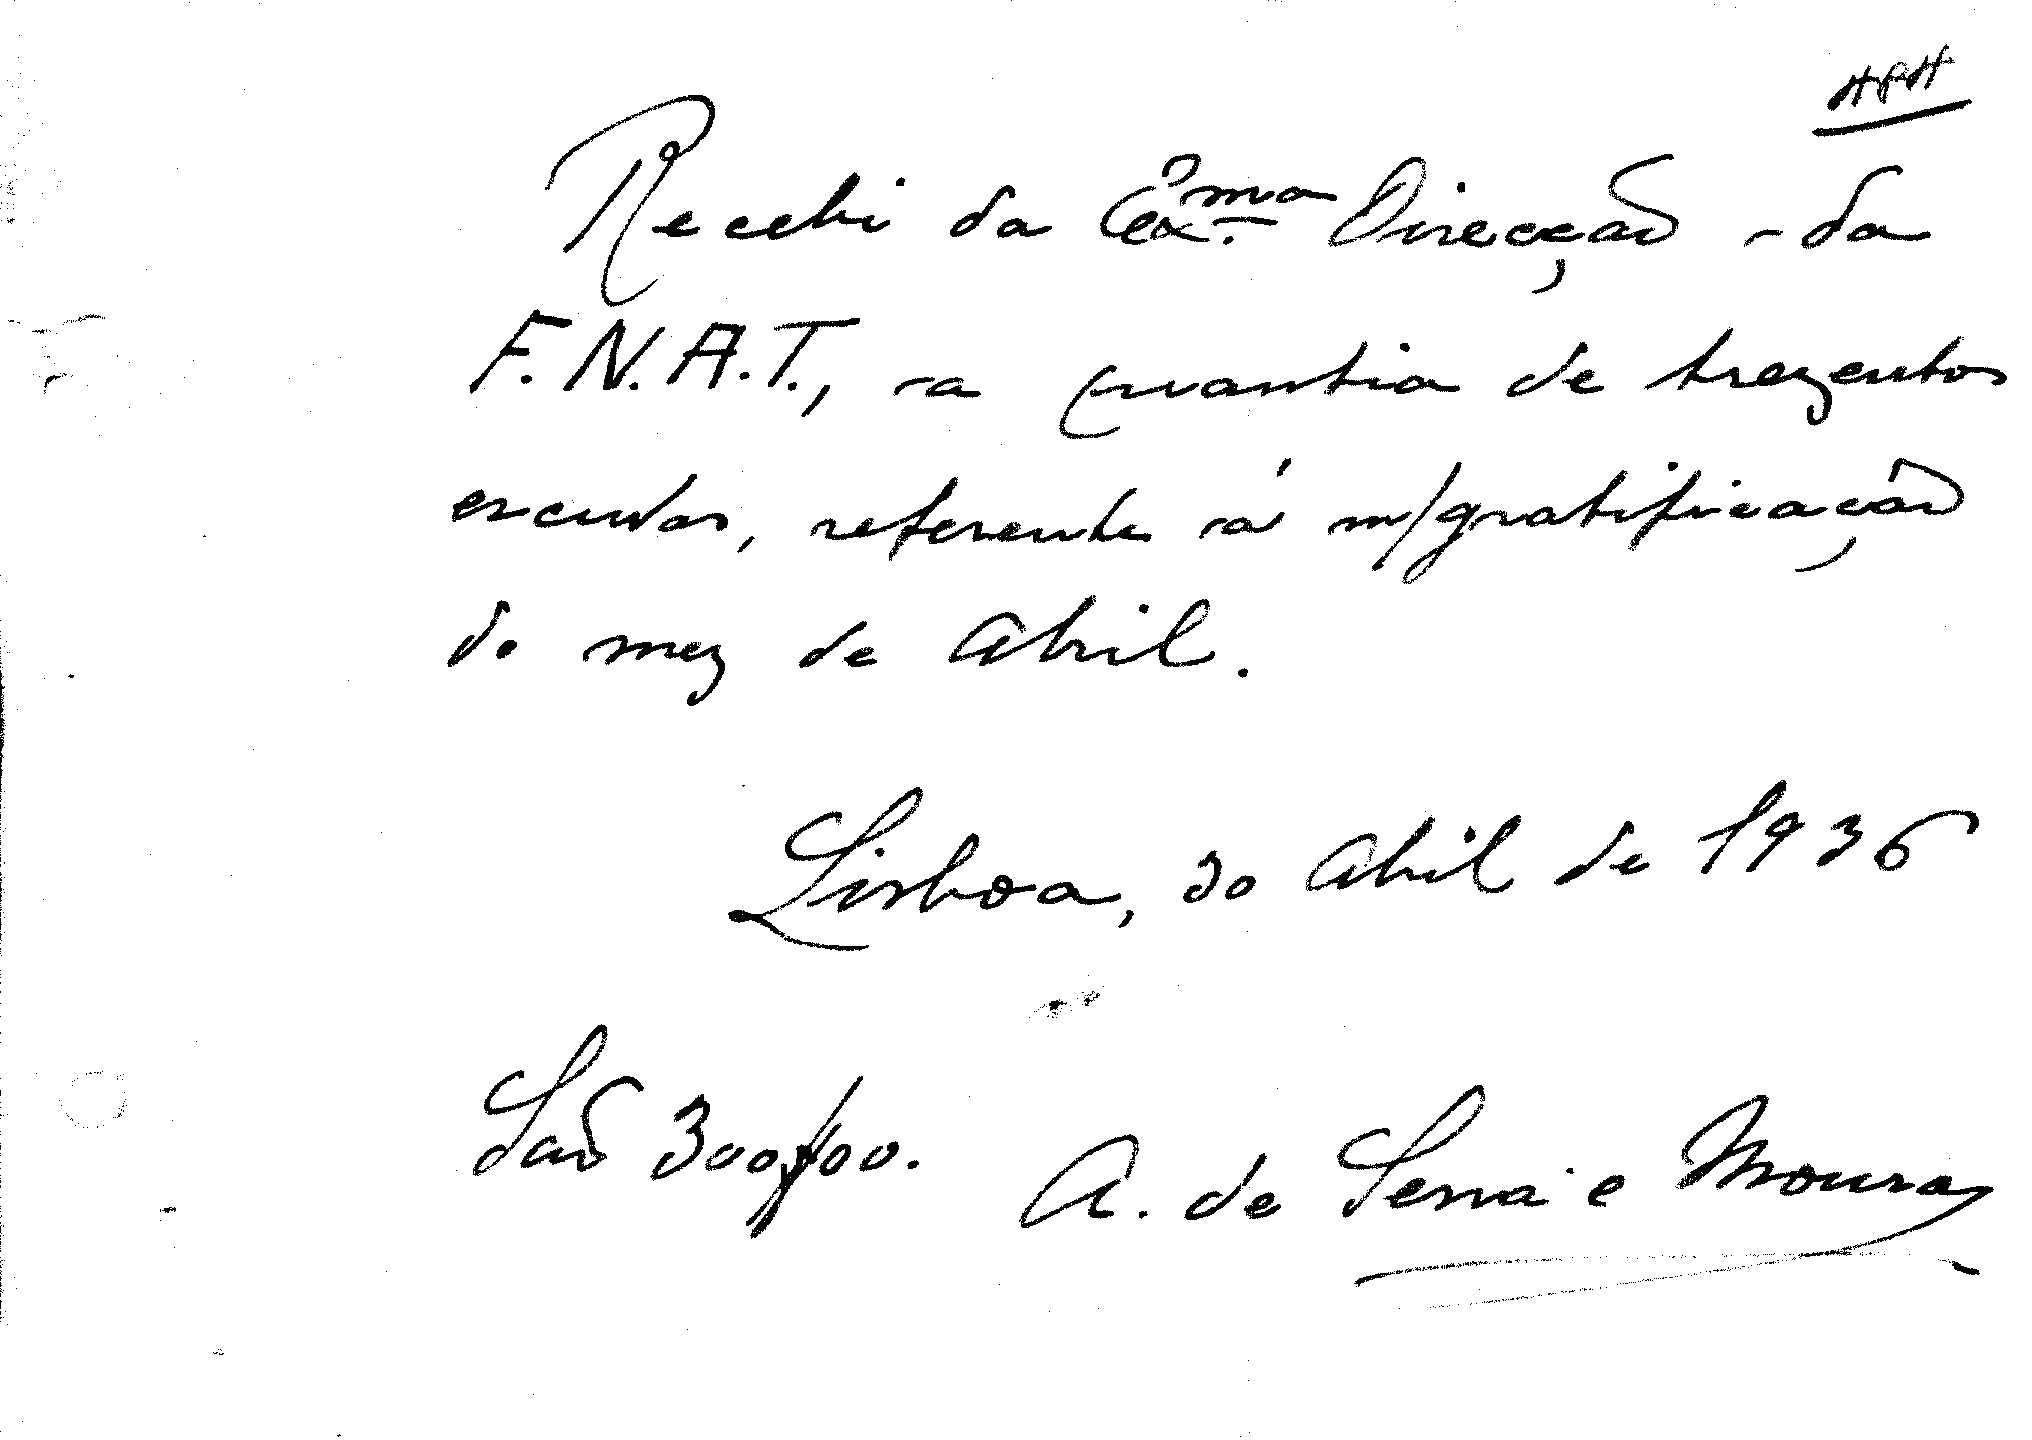 Recebi da Ex.ma Direcção da
F.N.A.T., a quantia de trezentos
escudos, referente á m/gratificação
do mez de Abril.
Lisboa, 30 Abril de 1936
São 300$00.
A. de Senna e Moura